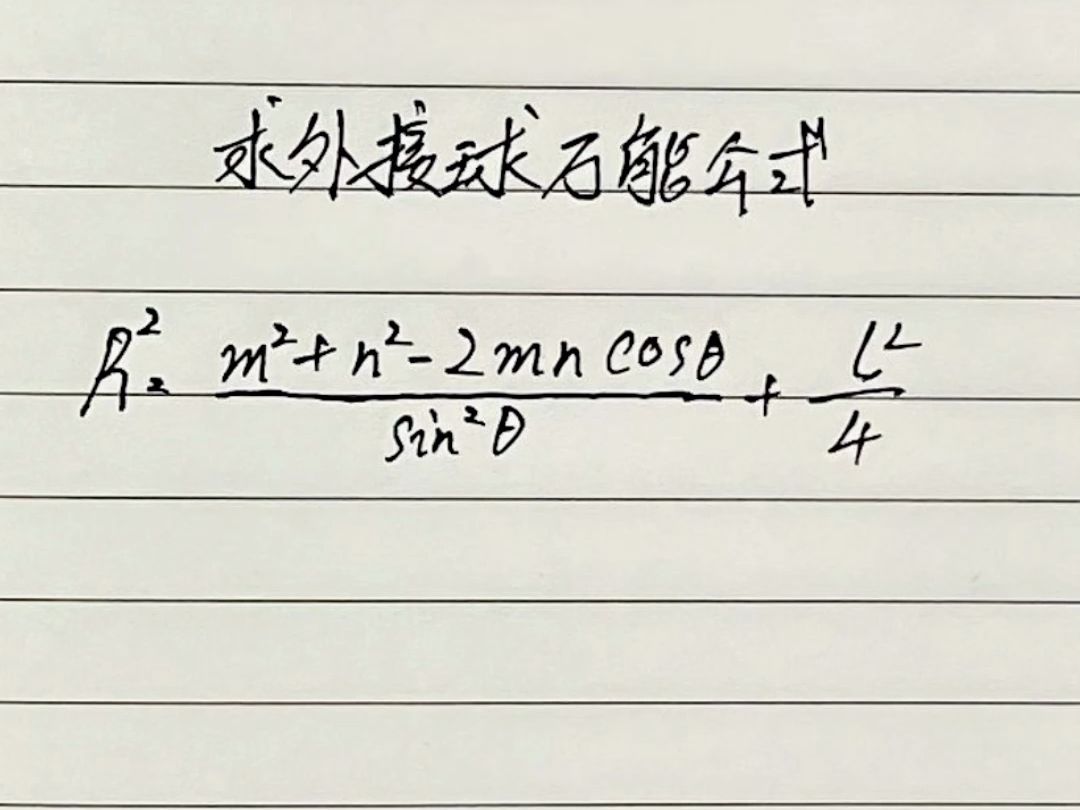 求外接球万能公式
R² = \frac{m² + n² - 2mn cosθ}{sin²θ} + \frac{l²}{4}